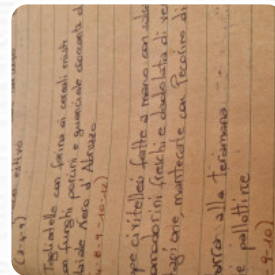 estivo
(2-4-9)
Tagliatelle con farina di cereali misti
con funghi porcini e guanciale croccante di
Maiale Nero d'Abruzzo
8-9-10-12)
pe civitellesi fatte a mano con
pomodorini freschi e dadolata di ve
stagione, mantecate con Pecorino di
alla Teramana
e pallottine
9-10)